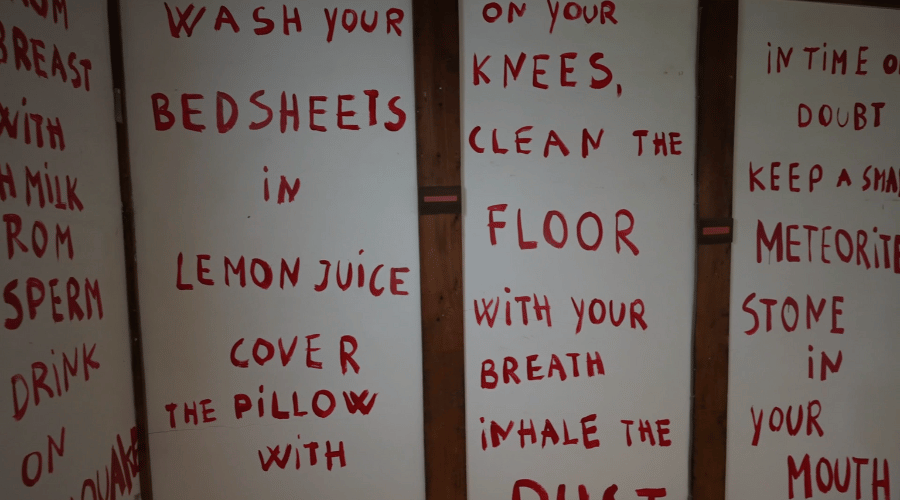 BREAST
WITH
MILK
ROM
SPERM
DRINK
ON
WASH YOUR
BEDSHEETS
iN
LEMON JUiCE
COVER
THE PiLLOW
WiTH
ON YOUR
KNEES,
CLEAN THE
FLOOR
WiTH YOUR
BREATH
iNHALE THE
DUST
iN TiME
DOUBT
KEEP A
METEORiTE
STONE
iN
YOUR
MOUTH